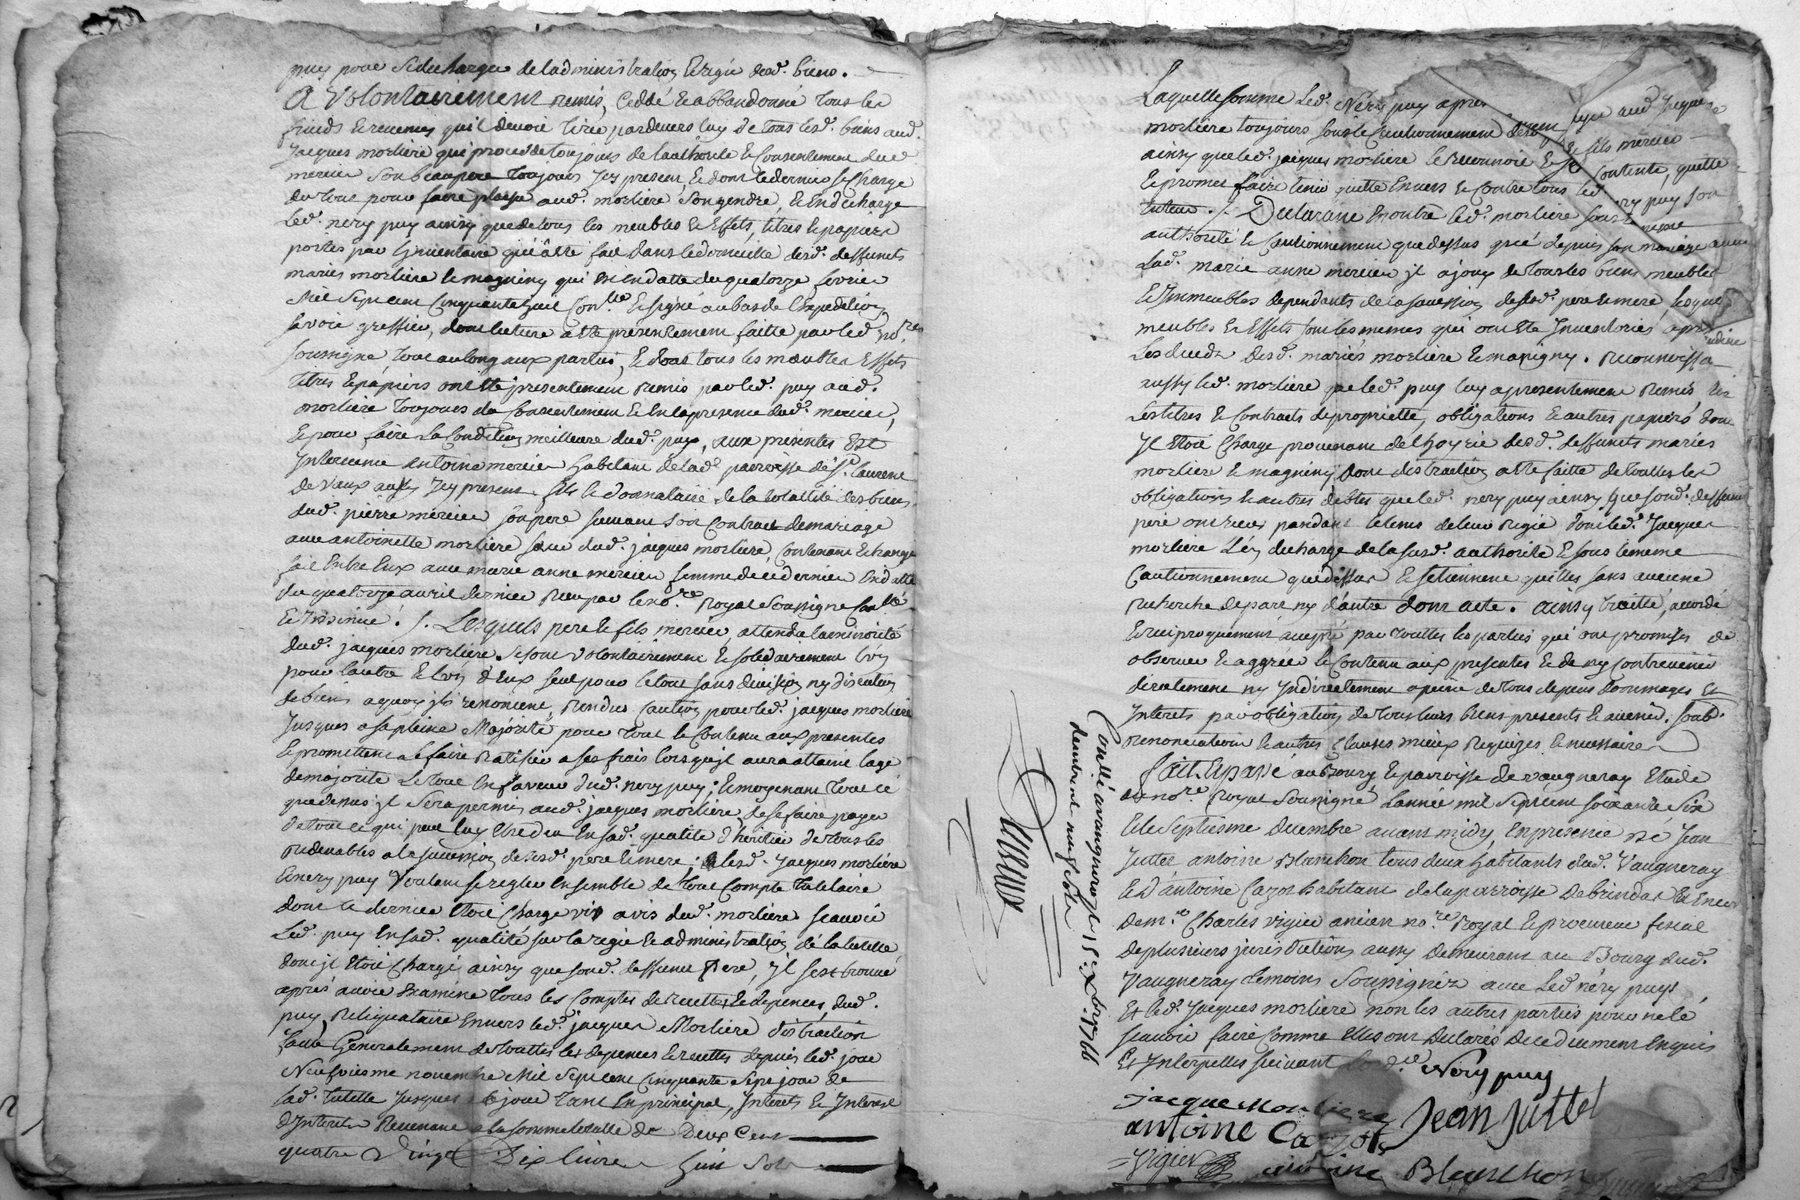 puy pour se decharger de ladministration et regie desd. biens.
A Volontairement remis, Ceddé et abbandonné tous les
fruids et revenus quil devoit tirer pardevers luy de tous lesd. biens aud.
Jacques morliere qui procedde toujours de lauthorité et consentement dud.
mercier son beaupere toujours Icy present, et dont ledernier se charge
du tout pour faire plaisir aud. morliere son gendre, et en decharge
led. nery puy ainsy que de tous les meubles et Effets, titres et papiers
portés par Linventaire qui a été fait dans le domicille desd. deffunts
mariés morliere et magniny qui est en datte du quatorze fevrier
Mil Sept cent Cinquante huit Con.llé et signé au bas de lexpedition
savoie greffier, dont lecture a été presentement faitte par led. no.re
soussigné tout au long aux parties, et dont tous les meubles Effets
titres et papiers ont été presentement Remis par led. puy aud.
morliere toujours du Consentement et en la presence dud. mercier,
et pour faire la Condition meilleure dud. puy, aux presentes Est
Intervenu antoine mercier habitant de lad. parroisse de S.t laurent
de Vaux aussy Icy present fils et donnataire de la totallité des biens
dud. pierre mercier son pere suivant son Contract de mariage
avec antoinette morliere sœur dud. jacques morliere, Contenant Echange
fait Entre Eux avec marie anne mercier femme de ce dernier En datte
du quatorze avril dernier Reçu par le no.re Royal soussigné Con.llé
et Insinué. Lesquels pere et fils mercier, attendu la minorité
dud. jacques morliere, se sont volontairement et solidairement l'un
pour l'autre et l'un d'eux seul pour le tout sans division ny discution
de biens a quoy ils renoncent, Rendus Caution pour led. jacques morliere
Jusques a sa pleine Majorité pour tout le Contenu aux presentes
et promettent le faire Ratifier a ses frais lorsquil aura attaint lage
de majorité le tout En faveur dud. nery puy; et moyenant tout ce
que dessus il sera permis aud. jacques morliere de se faire payer
de tout ce qui peut luy Etre du En sad. qualité d'heritier de tous les
redevables a la succession de sesd. pere et mere; lesd. Jacques morliere
et nery puy Voulant se regler Ensemble de tout Compte tutelaire
dont le dernier Etoit Chargé vis avis dud. morliere scavoir
Led. puy En sad. qualité sur la regie et administration de la tutelle
dont il Etoit Chargé ainsy que sond. deffunt pere, Il s'est trouvé
après avoir Examiné tous les Comptes de recettes et depences dud.
puy Reliquataire Envers led. jacques Morliere distraction
faitte Generalement de touttes les depences et recettes depuis led. jour
Neufvieme novembre Mil Sept cent Cinquante Sept jour de
lad. tutelle Jusques a ce jour tant En principal, Interets et Interest
d'Interets Revenant a la somme totalle de Deux Cent
quatre Vingt Dix livres huit sols
Laquelle somme Led. Nery puy apres
morliere toujours sous le Cautionnement desd.
ainsy que led. jacques morliere le reconnoit Contente, quitte
et promet faire tenir quitte Envers et Contre tous led. nery puy son
tuteur. Declarant Enoutre led. morliere sous la meme
authorité et Cautionnement que dessus que depuis son mariage avec
Lad. marie anne mercier il a jouy de tous les biens meubles
et Immeubles dependants de la succession de sesd. pere et mere, lesquels
meubles et Effets sont les memes qui ont Eté Inventoriés apres
Les deceds desd. mariés morliere et magniny. Reconnoissant
aussy led. morliere que led. puy luy a presentement Remis
Les titres et Contracts de proprieté, obligations et autres papiers dont
Il Etoit Chargé provenant de lhoyrie desd. deffunts mariés
morliere et magniny, dont distraction a été faitte de touttes les
obligations et autres debtes que led. nery puy ainsy que sond. deffunt
pere ont reçus pandant le tems de leur Regie dont led. Jacques
morliere l'en decharge de la susd. authorité et sous le meme
Cautionnement que dessus et se tiennent quittes sans aucune
recherche de part ny d'autre dont acte. ainsy traitté, accordé
et reciproquement accepté par touttes les parties qui ont promises de
observer et aggréer le Contenu aux presentes et de ny contrevenir
directement ny Indirectement a peine de tous depens dommages Et
Interets par obligation de tous leurs biens presents et avenir. soub.
Renonciation et autres Clauses mieux Requizes et necessaires
fait et passé au Bourg et parroisse de vaugneray Etude
du no.re Royal soussigné L'année mil Sept cent soixante Six
et le Septieme decembre avant midy En presence de Jean
Juttet antoine Blanchon tous deux habitants dud. Vaugneray
Et d'antoine Cazot habitant de la parroisse de brindas Et Encor
de m.re Charles vigier ancien no.re Royal et procureur fiscal
de plusieurs jurisdictions aussy demeurant au Bourg dud.
Vaugneray temoins soussignéz avec Led. nery puy
Et led. Jacques morliere non les autres parties pour ne le
scavoir faire Comme Elles ont Declarés de ce duement Enquis
Et Interpellés suivant Nery puy
jacque Morliere Jean Juttet
antoine Cazot
Vigier antoine Blanchon
Con.llé a vaugneray le 15.e Xbre 1766